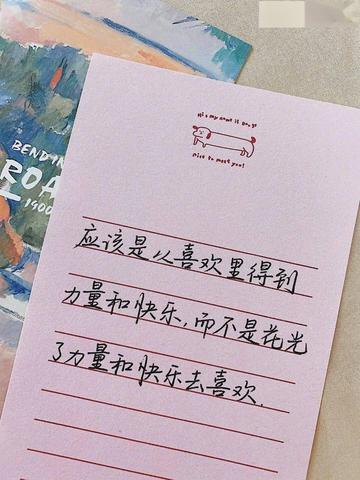 BENDIN
ROA
1900
Hi~ my name is
nice to meet you!
应该是从喜欢里得到
力量和快乐,而不是花光
了力量和快乐去喜欢.